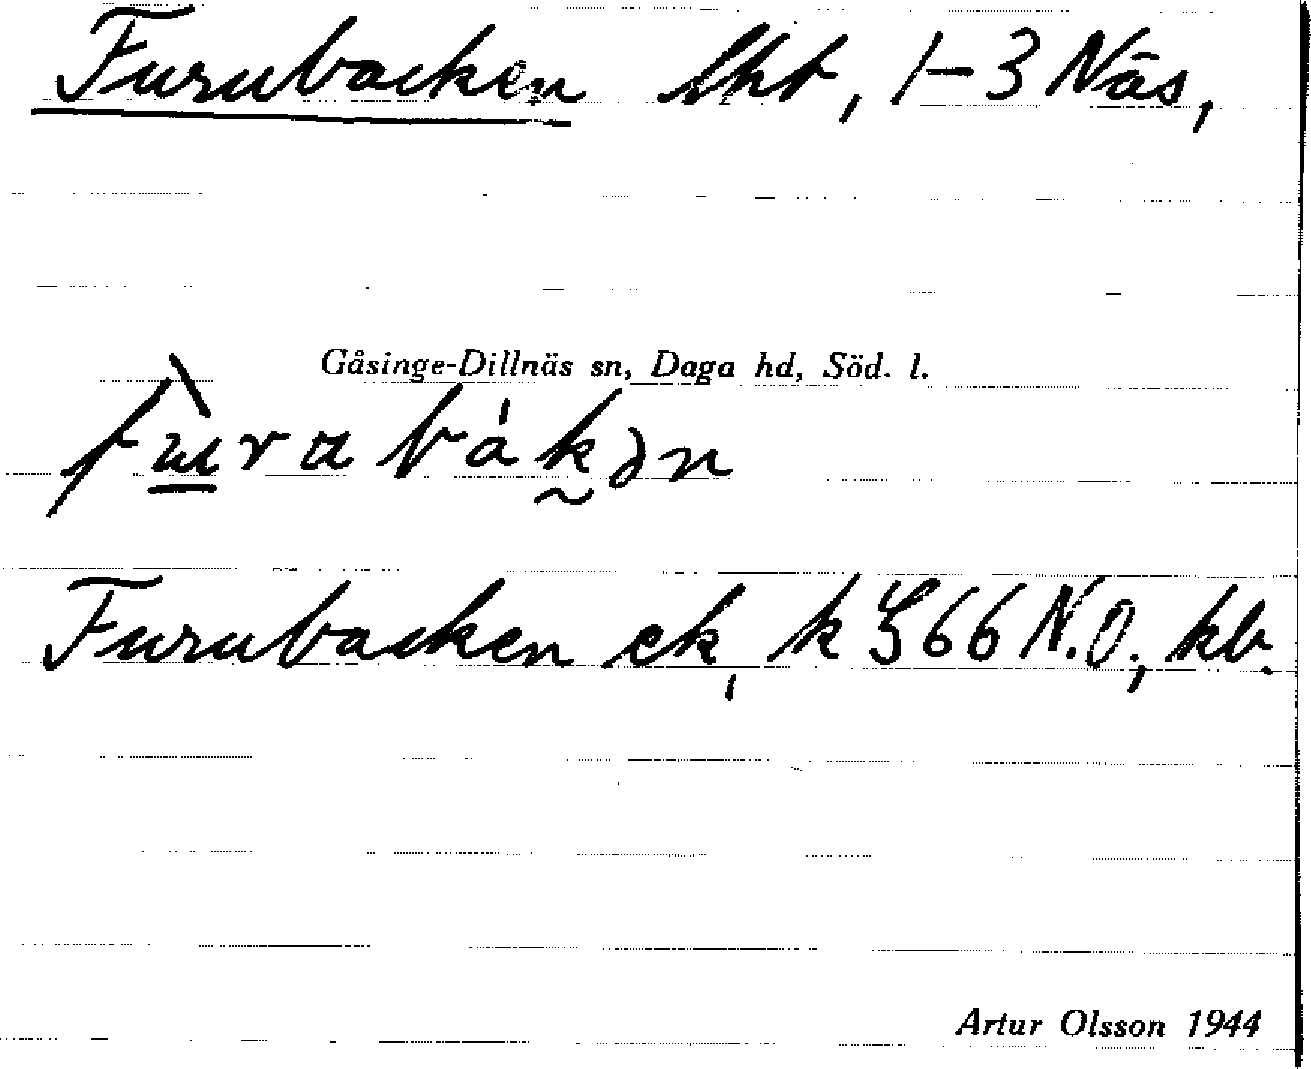 Furubacken lht, 1-3 Näs,
Gåsinge-Dillnäs sn, Daga hd, Söd. l.
fùrabákən
Furubacken ek, k 366 N.O., kb.
Artur Olsson 1944